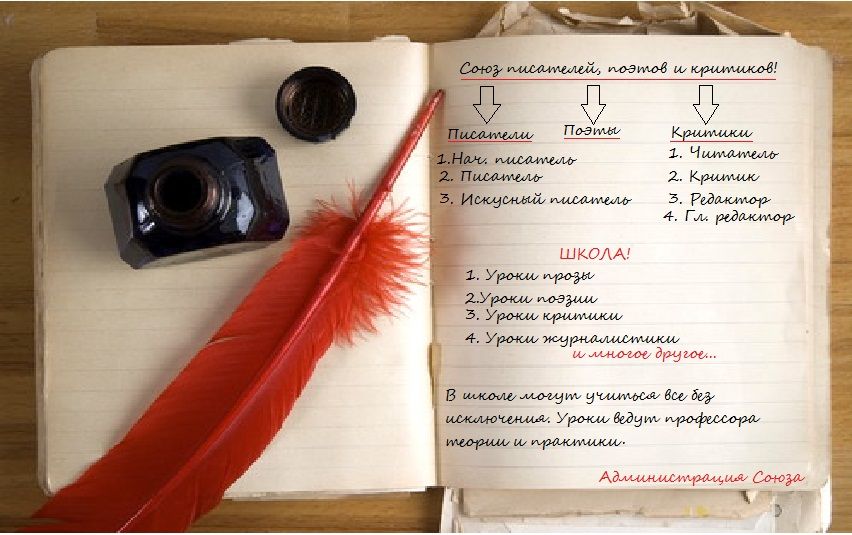 Союз писателей, поэтов и критиков!
Писатели
1.Нач. писатель
2. Писатель
3. Искусный писатель
Поэты
Критики
1. Читатель
2. Критик
3. Редактор
4. Гл. редактор
ШКОЛА!
1. Уроки прозы
2.Уроки поэзии
3. Уроки критики
4. Уроки журналистики
и многое другое...
В школе могут учиться все без
исключения. Уроки ведут профессора
теории и практики.
Администрация Союза